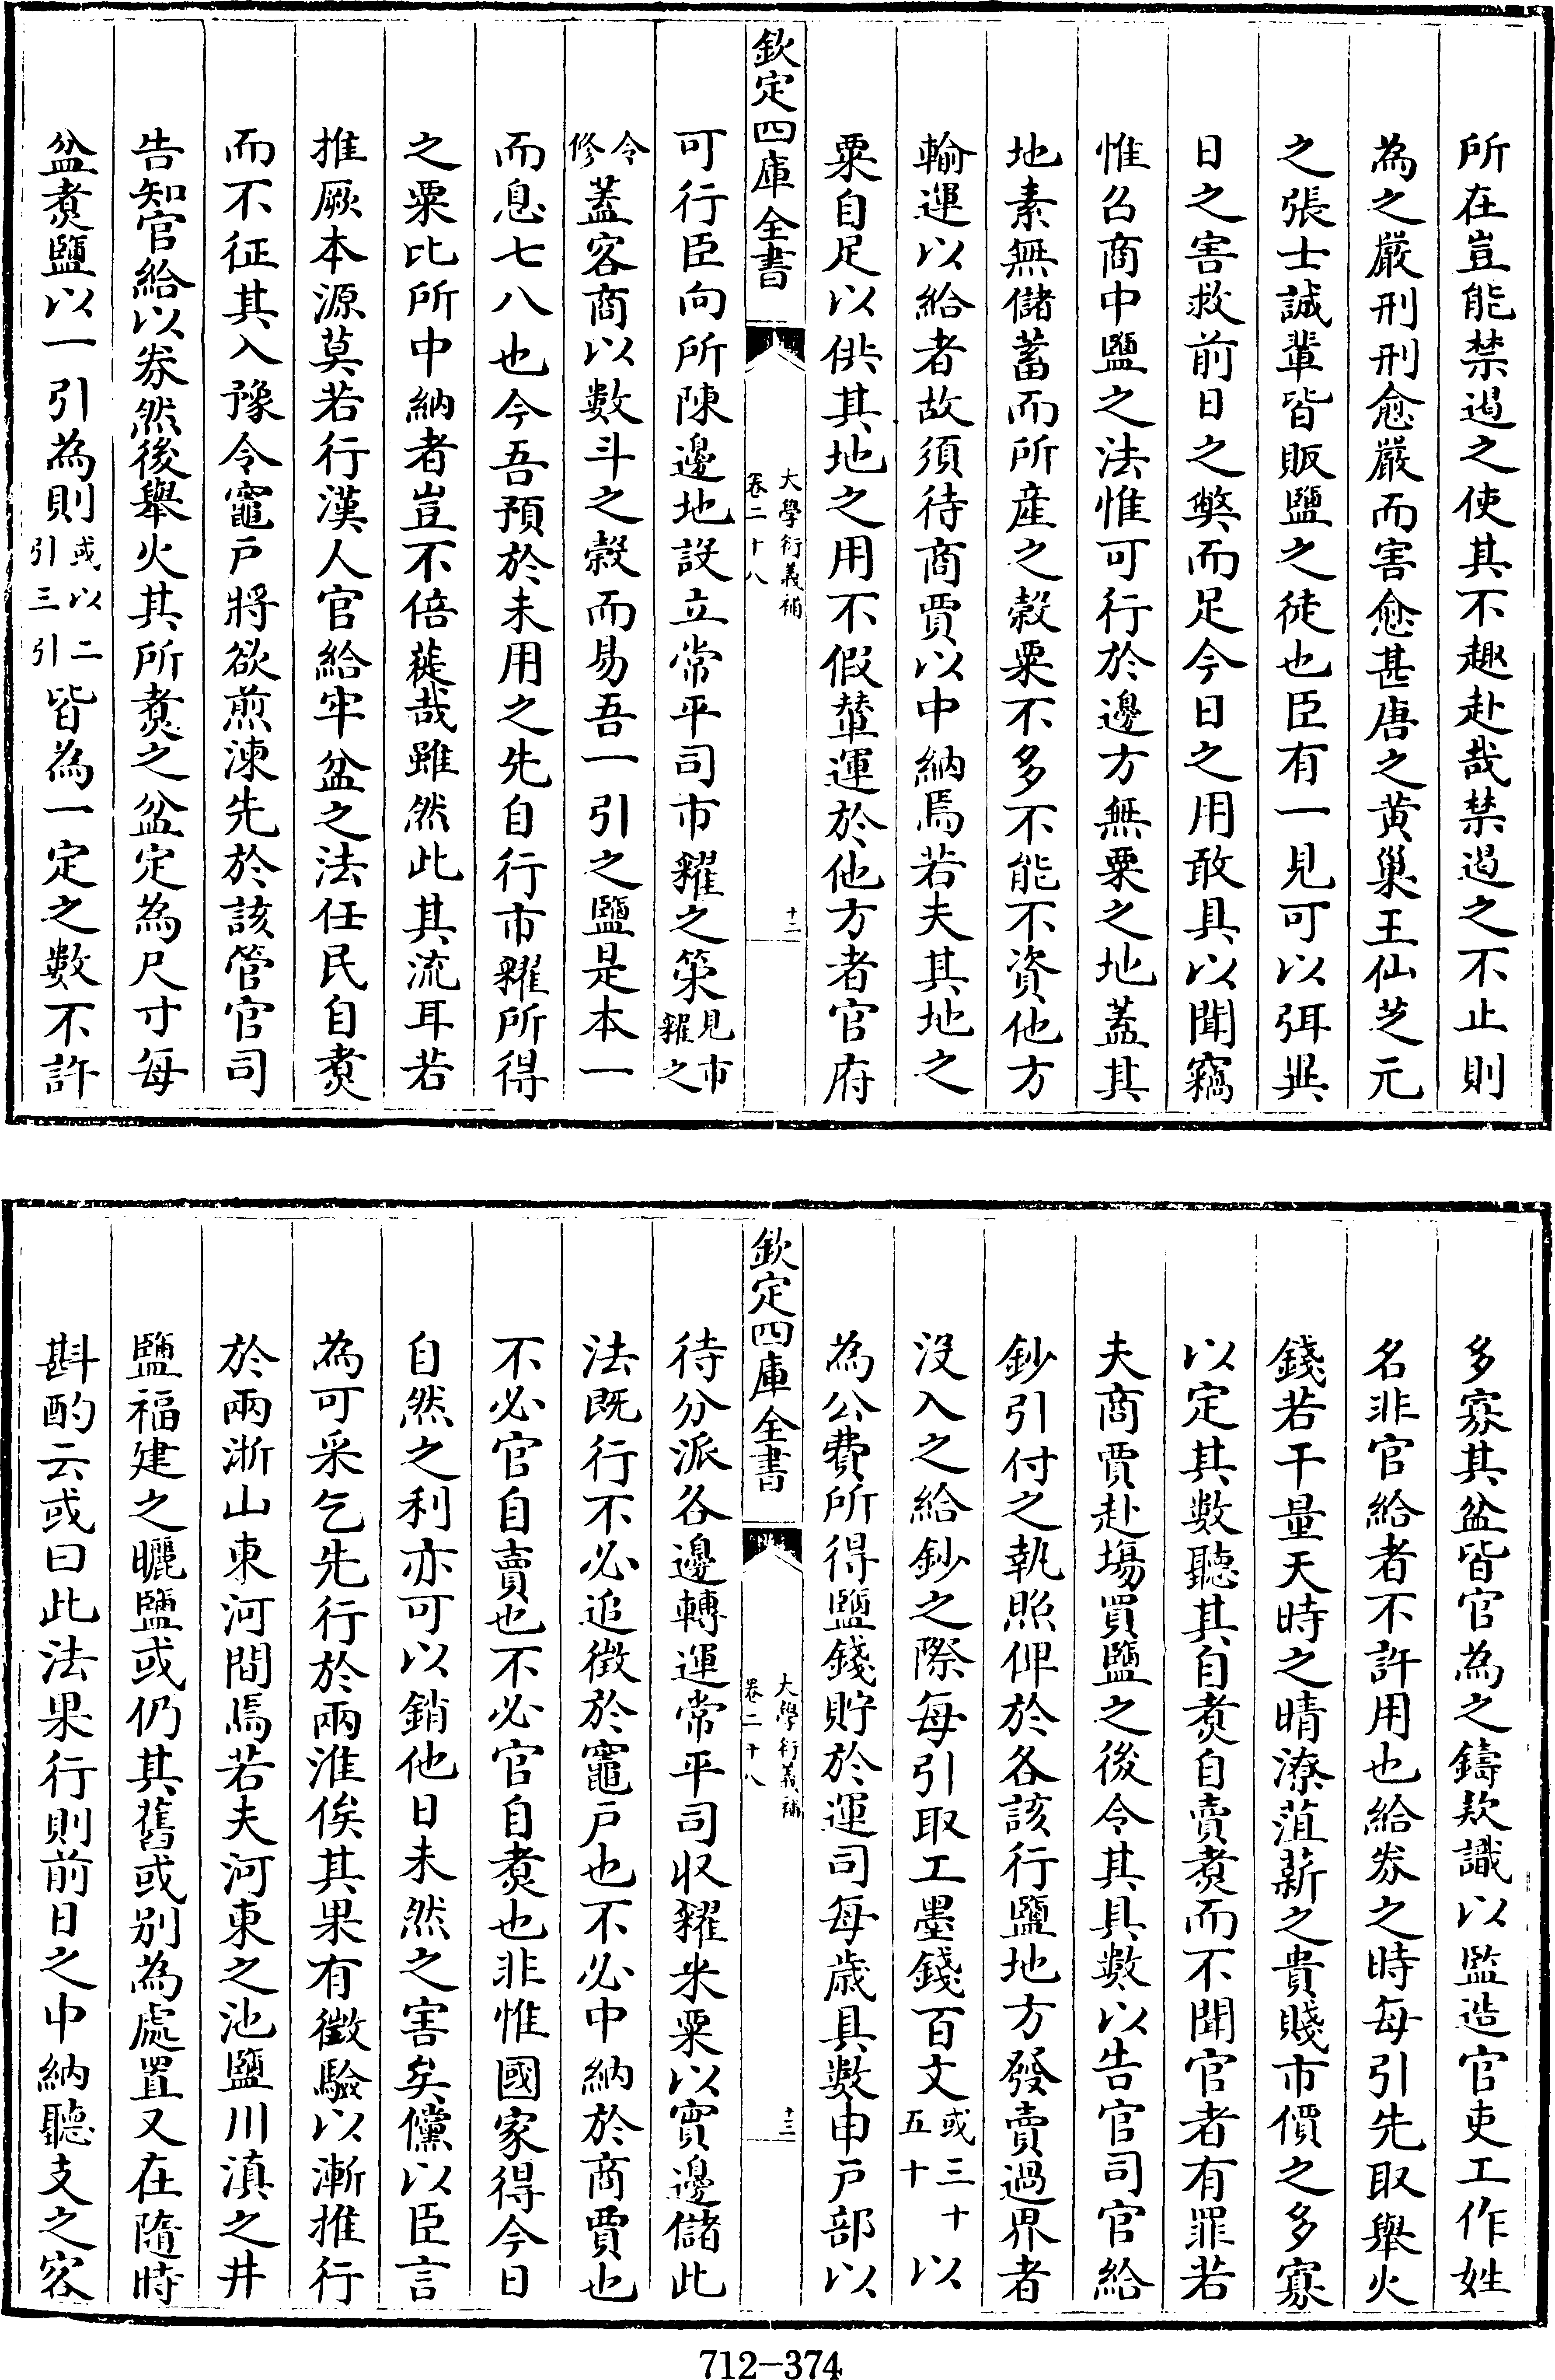 所在豈能禁遏之使其不趣赴哉禁遏之不止則
為之嚴刑刑愈嚴而害愈甚唐之黄巢王仙芝元
之張士誠輩皆販鹽之徒也臣有一見可以弭異
日之害救前日之弊而足今日之用敢具以聞竊
惟召商中鹽之法惟可行於邊方無粟之地蓋其
地素無儲蓄而所產之穀粟不多不能不資他方
輸運以給者故須待商賈以中納焉若夫其地之
粟自足以供其地之用不假輦運於他方者官府
欽定四庫全書
大學衍義補
卷二十八
十二
可行臣向所陳邊地設立常平司市糴之策見市糴之
令修蓋客商以數斗之穀而易吾一引之鹽是本一
而息七八也今吾預於未用之先自行市糴所得
之粟比所中納者豈不倍蓰哉雖然此其流耳若
推厥本源莫若行漢人官給牢盆之法任民自煑
而不征其入豫令竈户將欲煎湅先於該管官司
告知官給以劵然後舉火其所煑之盆定為尺寸每
盆煑鹽以一引為則或以二引三引皆為一定之數不許
多寡其盆皆官為之鑄款識以監造官吏工作姓
名非官給者不許用也給劵之時每引先取舉火
錢若干量天時之晴潦蒩薪之貴賤市價之多寡
以定其數聽其自煑自賣煑而不聞官者有罪若
夫商賈赴塲買鹽之後令其具數以告官司官給
鈔引付之執照俾於各該行鹽地方發賣過界者
没入之給鈔之際每引取工墨錢百文或三十五十以
為公費所得鹽錢貯於運司每歲具數申户部以
欽定四庫全書
大學衍義補
卷二十八
十三
待分派各邊轉運常平司收糴米粟以實邊儲此
法既行不必追徴於竈户也不必中納於商賈也
不必官自賣也不必官自煑也非惟國家得今日
自然之利亦可以銷他日未然之害矣儻以臣言
為可采乞先行於兩淮俟其果有徴驗以漸推行
於兩浙山東河間焉若夫河東之池鹽川滇之井
鹽福建之曬鹽或仍其舊或别為處置又在隨時
斟酌云或曰此法果行則前日之中納聽支之客
712-374